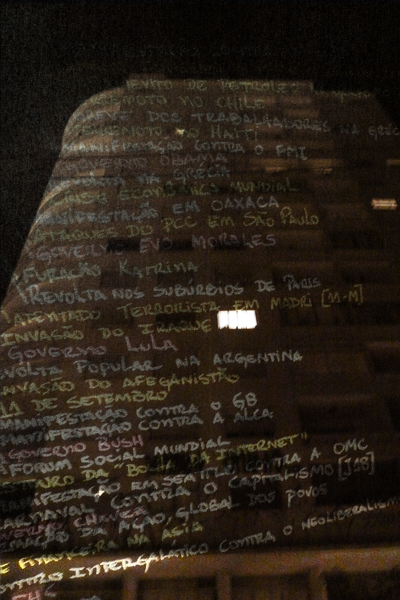 DE PETROLEO
TERREMOTO NO CHILE
GREVE DOS TRABALHADORES NA GRÉCIA
TERREMOTO NO HAITI
MANIFESTAÇÃO CONTRA O FMI
GOVERNO OBAMA
REVOLTA NA GRÉCIA
CRISE ECONÔMICA MUNDIAL
MANIFESTAÇÃO EM OAXACA
ATAQUES DO PCC EM SÃO PAULO
GOVERNO EVO MORALES
FURAÇÃO KATRINA
REVOLTA NOS SUBÚRBIOS DE PARIS
ATENTADO TERRORISTA EM MADRI [11-M]
INVASÃO DO IRAQUE
GOVERNO LULA
REVOLTA POPULAR NA ARGENTINA
INVASÃO DO AFEGANISTÃO
11 DE SETEMBRO
MANIFESTAÇÃO CONTRA O G8
MANIFESTAÇÃO CONTRA A ALCA
GOVERNO BUSH
FORUM SOCIAL MUNDIAL
ESTOURO DA "BOLHA DA INTERNET"
MANIFESTAÇÃO EM SEATTLE CONTRA A OMC
CARNAVAL CONTRA O CAPITALISMO [J18]
GOVERNO CHAVEZ
AÇÃO GLOBAL DOS POVOS
FINANCEIRA NA ÁSIA
ENCONTRO INTERGALÁTICO CONTRA O NEOLIBERALISMO